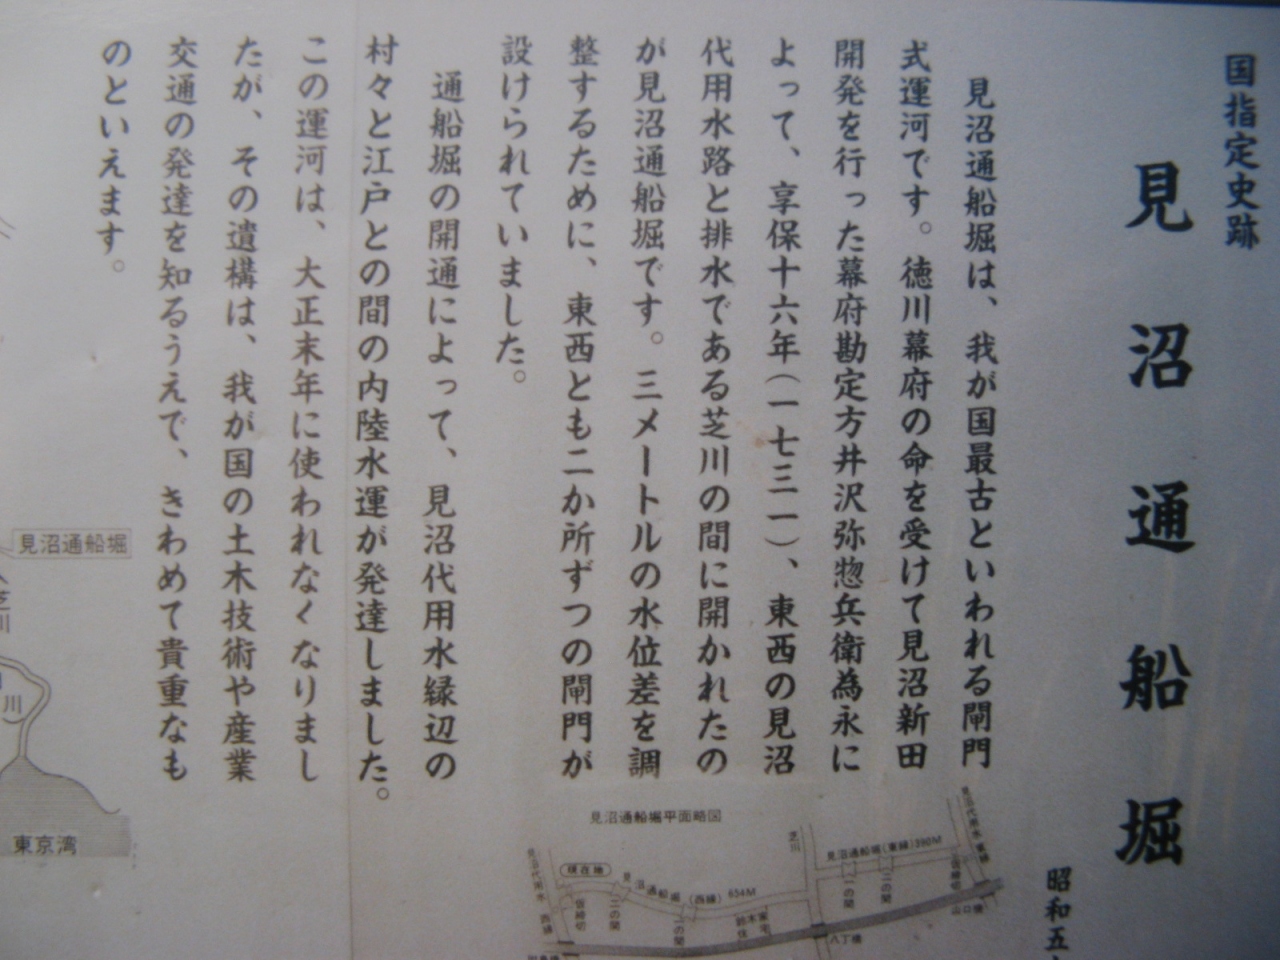 国指定史跡
見沼通船堀
見沼通船堀は、我が国最古といわれる閘門
式運河です。徳川幕府の命を受けて見沼新田
開発を行った幕府勘定方井沢弥惣兵衛為永に
よって、享保十六年(一七三一)、東西の見沼
代用水路と排水である芝川の間に開かれたの
が見沼通船堀です。三メートルの水位差を調
整するために、東西とも二か所ずつの閘門が
設けられていました。
通船堀の開通によって、見沼代用水縁辺の
村々と江戸との間の内陸水運が発達しました。
この運河は、大正末年に使われなくなりまし
たが、その遺構は、我が国の土木技術や産業
交通の発達を知るうえで、きわめて貴重なも
のといえます。
昭和五
見沼通船堀平面略図
見沼代用水東縁
見沼通船堀(東縁)390M
芝川
一の関
二の関
山口橋
見沼代用水西縁
現在地
見沼通船堀(西縁)654M
二の関
一の関
鈴木家
住宅
八丁橋
見沼通船堀
芝川
川
東京湾